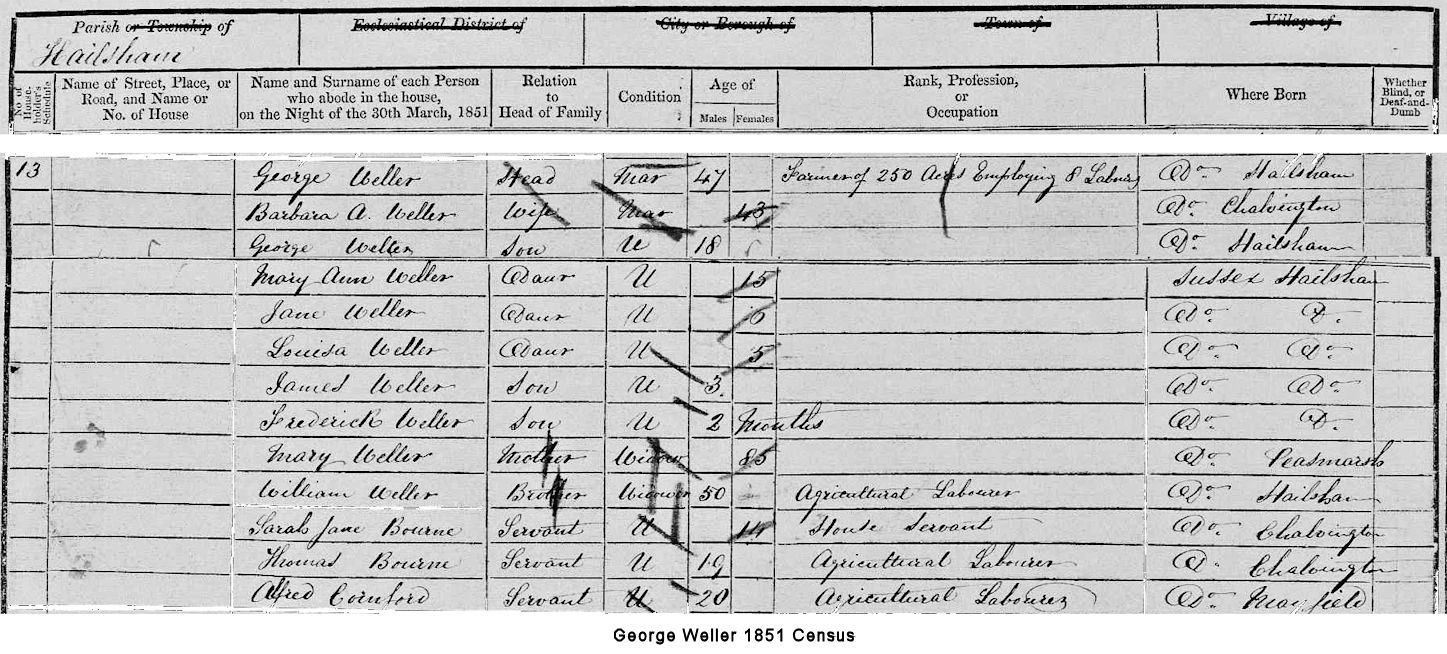 Parish or Township of Ecclesiastical District of City or Borough of Town of Village of
Hailsham
No. of House-holder's Schedule Name of Street, Place, or Road, and Name or No. of House Name and Surname of each Person who abode in the house, on the Night of the 30th March, 1851 Relation to Head of Family Condition Age of Males Females Rank, Profession, or Occupation Where Born Whether Blind, or Deaf-and-Dumb
13 George Weller Head Mar 47 Farmer of 250 Acres Employing 8 Labours Do Hailsham
Barbara A. Weller Wife Mar 43 Do Chalvington
George Weller Son U 18 Do Hailsham
Mary Ann Weller Daur U 15 Sussex Hailsham
Jane Weller Daur U Do Do
Louisa Weller Daur U 5 Do Do
James Weller Son U 3 Do Do
Frederick Weller Son U 2 Months Do Do
Mary Weller Mother Widow 85 Do Peasmarsh
William Weller Brother Widower 50 Agricultural Labourer Do Hailsham
Sarah Jane Bourne Servant U 14 House Servant Do Chalvington
Thomas Bourne Servant U 19 Agricultural Labourer Do Chalvington
Alfred Cornford Servant U 20 Agricultural Labourer Do Mayfield
George Weller 1851 Census